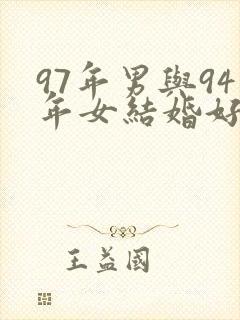 97年男與94
年女結婚好
王益國